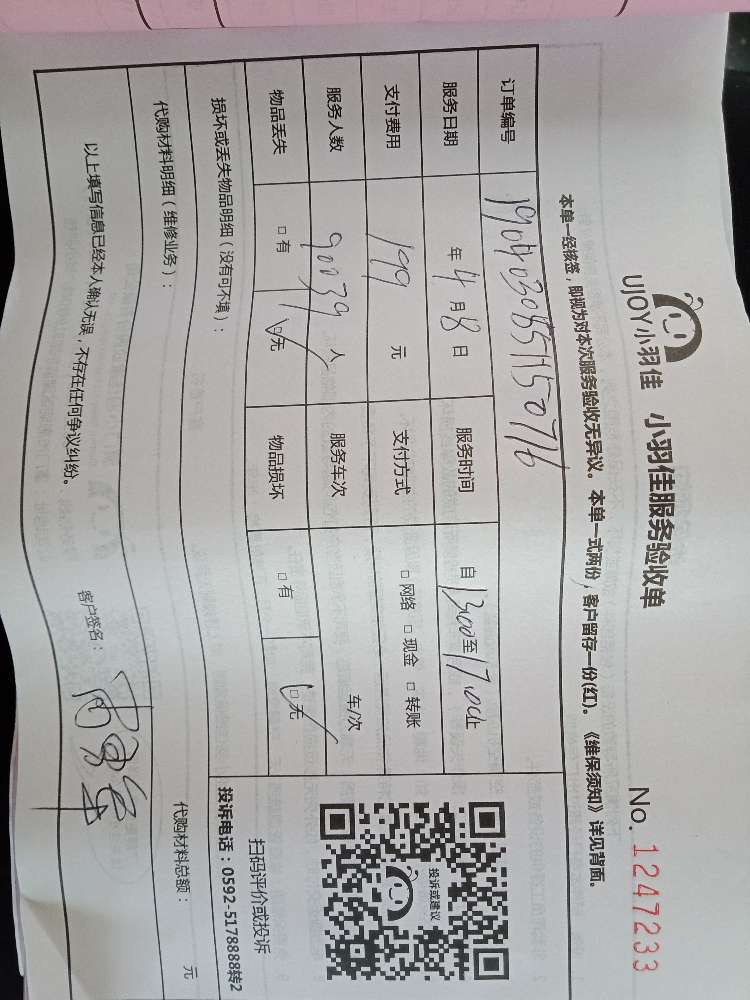 UJOY小羽佳 小羽佳服务验收单 No. 1247233
本单一经核签，即视为对本次服务验收无异议。本单一式两份，客户留存一份(红)。《维保须知》详见背面。
订单编号
服务日期 年 4 月 8 日 服务时间 自 1300 至 1700止
支付费用 199 元 支付方式 □ 网络 □ 现金 □ 转账
服务人数 90039 人 服务车次 车/次
物品丢失 □ 有 □ 无 物品损坏 □ 有 □ 无
投诉或建议
扫码评价或投诉
投诉电话：0592-5178888转2
损坏或丢失物品明细（没有可不填）：
代购材料明细（维修业务）： 代购材料总额： 元
以上填写信息已经本人确认无误，不存在任何争议纠纷。 客户签名：